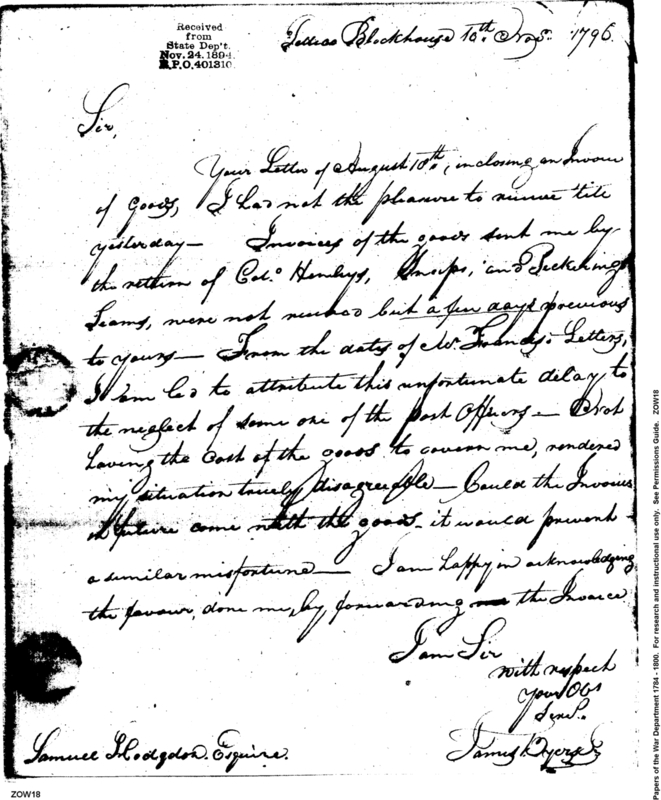 Received
from
State Dep't.
Nov. 24. 1894.
R.P.O. 401310.
Tellico Blockhouse 10th. Nov. 1796.
Sir,
Your Letter of August 10th., inclosing an Invoice
of Goods, I had not the pleasure to receive till
yesterday — Invoices of the goods sent me by
the return of Colo. Henleys, Snips, and Pickerings
Teams, were not received but a few days previous
to yours — From the dates of Mr Francis's Letters,
I am led to attribute this unfortunate delay to
the neglect of some one of the post Officers — Not
having the Cost of the goods to govern me, rendered
my situation truely disagreeable — Could the Invoices
in future come with the goods, it would prevent
a similar misfortune — I am happy in acknowledging
the favour, done me, by forwarding the Invoice
I am Sir
with respect
your Obt
Servt.
James Byers
Samuel Hodgdon. Esquire.
ZOW18
Papers of the War Department 1784 - 1800. For research and instructional use only. See Permissions Guide. ZOW18